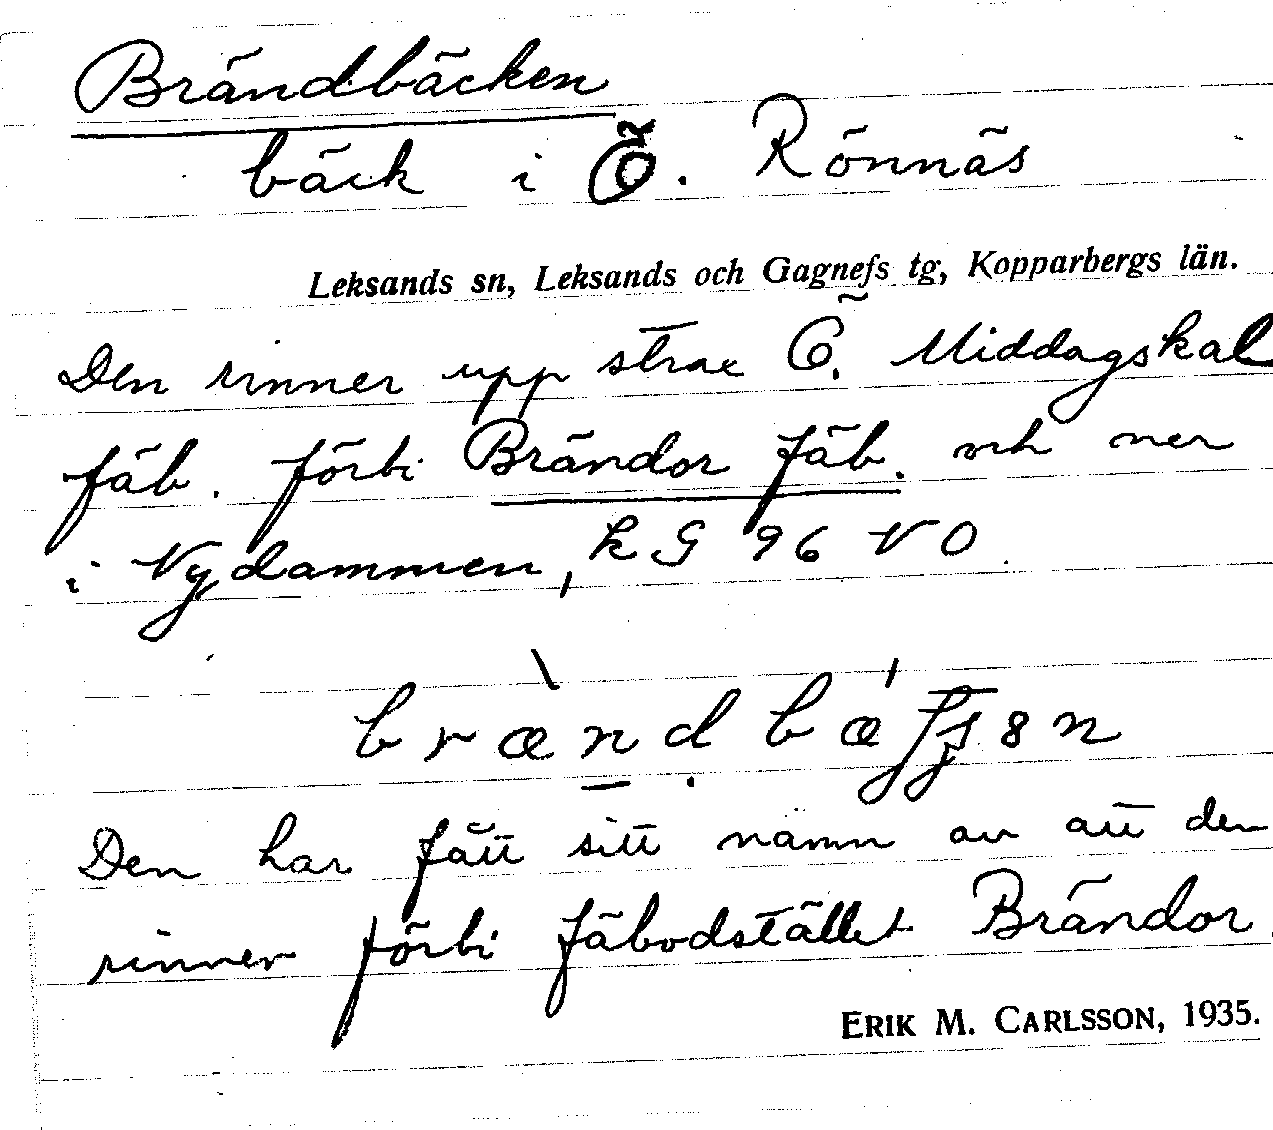 Brändbäcken
bäck i Ö. Rönnäs
Leksands sn, Leksands och Gagnefs tg, Kopparbergs län.
Den rinner upp strax Ö. Middagskal
fäb. förbi Brändor fäb. och ner
i Nydammen, kG 96 VO
Den har fått sitt namn av att den
rinner förbi fäbodstället Brändor
ERIK M. CARLSSON, 1935.